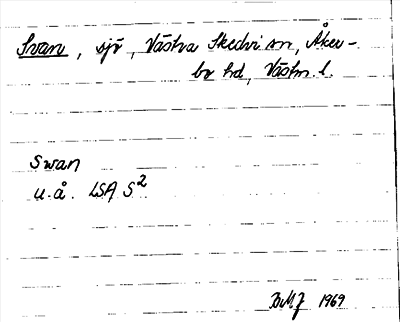 Svan, sjö, Västra Skedvi sn, Åker-
bo hd, Västm. l.
Swan
u. å. LSA S²
1969